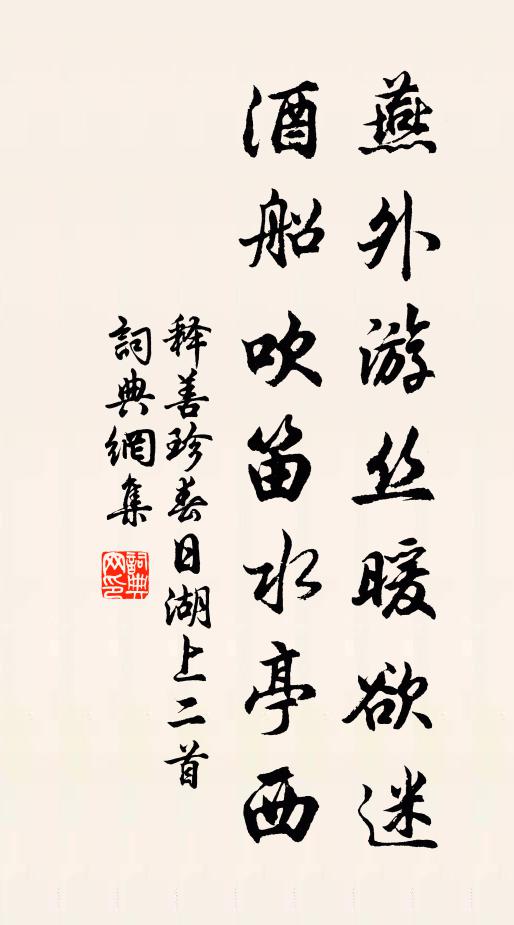 燕外游丝暖欲迷
酒船吹笛水亭西
释善珍春日湖上二首
詞典網集
詞典
网印